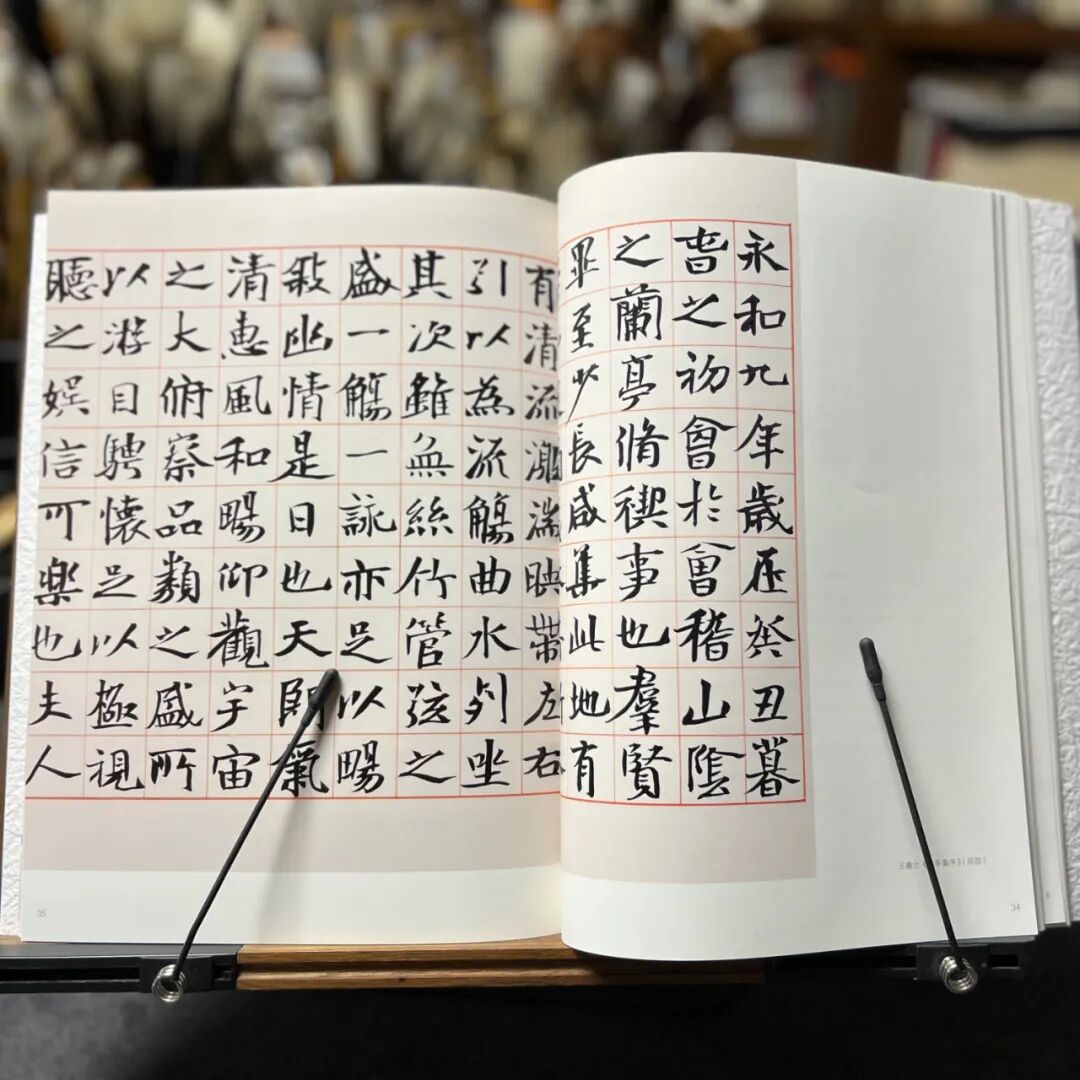 永和九年歲在癸丑暮
春之初會於會稽山陰
之蘭亭脩禊事也羣賢
畢至少長咸集此地有
有清流激湍映帶左右
引以為流觴曲水列坐
其次雖無絲竹管弦之
盛一觴一詠亦足以暢
叙幽情是日也天朗氣
清惠風和暢仰觀宇宙
之大俯察品類之盛所
以游目騁懷足以極視
聽之娛信可樂也夫人
王羲之《亭集序》（局部）
34
35